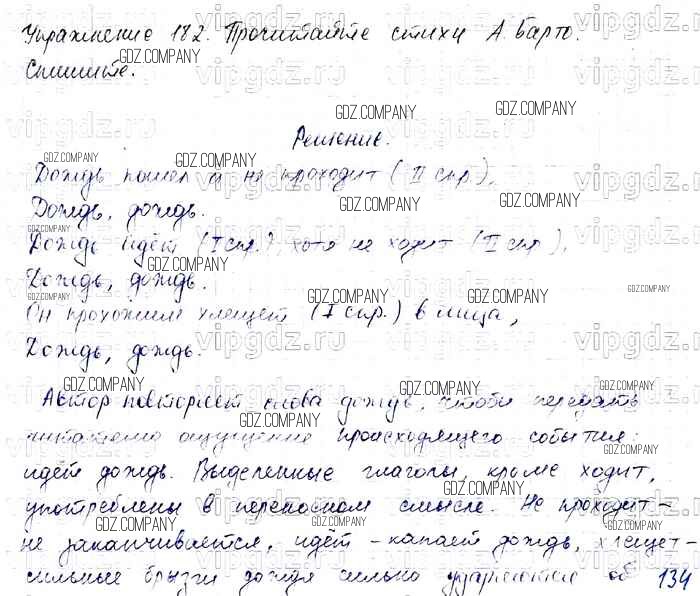 Упражнение 182. Прочитайте стихи А. Барто.
Спишите.
Решение.
Дождь пошёл и не проходит (II спр.),
Дождь, дождь.
Дождь идёт (I спр.), хотя не ходит (II спр.),
Дождь, дождь.
Он прохожим хлещет (I спр.) в лица,
Дождь, дождь.
Автор повторяет слова дождь, чтобы передать
читателю ощущение происходящего события:
идёт дождь. Выделенные глаголы, кроме ходит,
употреблены в переносном смысле. Не проходит-
не заканчивается, идёт - капает дождь, хлещет-
сильные брызги дождя сильно ударяются об
134
vipgdz.ru
GDZ.COMPANY